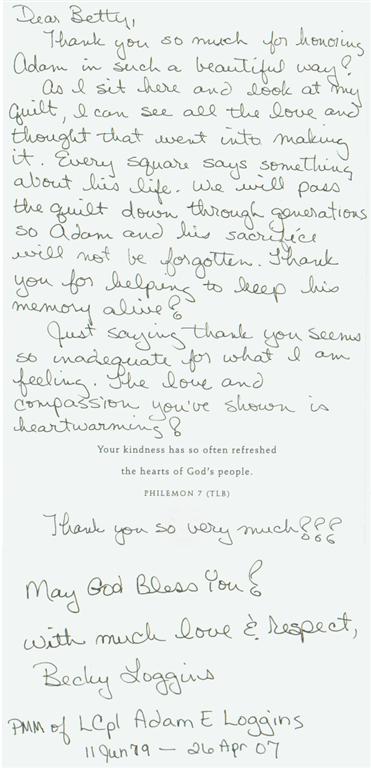 Dear Betty,
Thank you so much for honoring
Adam in such a beautiful way!
As I sit here and look at my
quilt, I can see all the love and
thought that went into making
it. Every square says something
about his life. We will pass
the quilt down through generations
so Adam and his sacrifice
will not be forgotten. Thank
you for helping to keep his
memory alive!
Just saying thank you seems
so inadequate for what I am
feeling. The love and
compassion you've shown is
heartwarming!
Your kindness has so often refreshed
the hearts of God's people.
PHILEMON 7 (TLB)
Thank you so very much!!!
May God Bless You!
With much love & respect,
Becky Loggins
PMM of LCpl Adam E Loggins
11 Jun 79 — 26 Apr 07